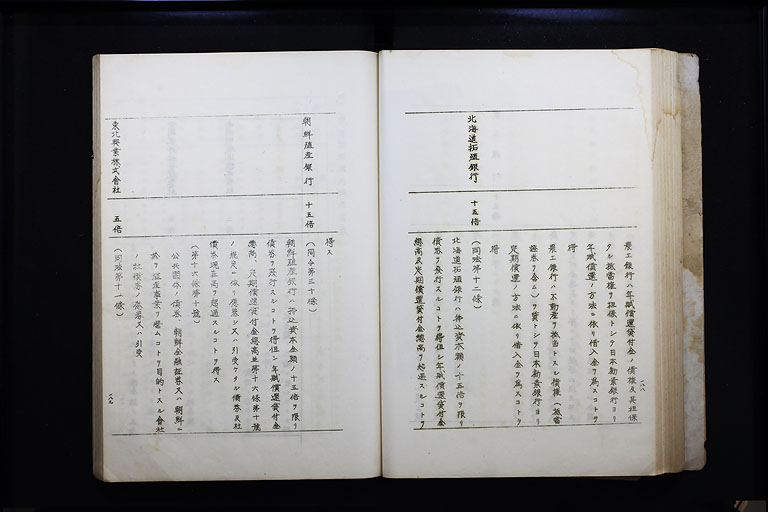 農工銀行ハ年賦償還貸付金ノ債権及其担保
タル抵当権ヲ担保トシテ日本勧業銀行ヨリ
年賦償還ノ方法ニ依リ借入金ヲ為スコトヲ
得
農工銀行ハ不動産ヲ抵当トスル債権(抵当
証券ヲ含ム)ヲ質トシテ日本勧業銀行ヨリ
定期償還ノ方法ニ依リ借入金ヲ為スコトヲ
得
北海道拓殖銀行
十五倍
(同法第十二條)
北海道拓殖銀行ハ払込資本額ノ十五倍ヲ限リ
債券ヲ発行スルコトヲ得但シ年賦償還貸付金
総高及定期償還貸付金総高ヲ超過スルコトヲ
一八八
得ス
朝鮮殖産銀行
十五倍
(同令第三十條)
朝鮮殖産銀行ハ払込資本金額ノ十五倍ヲ限リ
債券ヲ発行スルコトヲ得但シ年賦償還貸付金
総高、定期償還貸付金総高並第十六條第十號
ノ規定ニ依リ應募シ又ハ引受ケタル債券及社
債券現在高ヲ超過スルコトヲ得ス
(第十六條第十號)
公共団体ノ債券、朝鮮金融証券又ハ朝鮮ニ
於テ殖産事業ヲ営ムコトヲ目的トスル会社
ノ社債券ノ應募又ハ引受
東北興業株式會社
五倍
(同法第十一條)
一八九